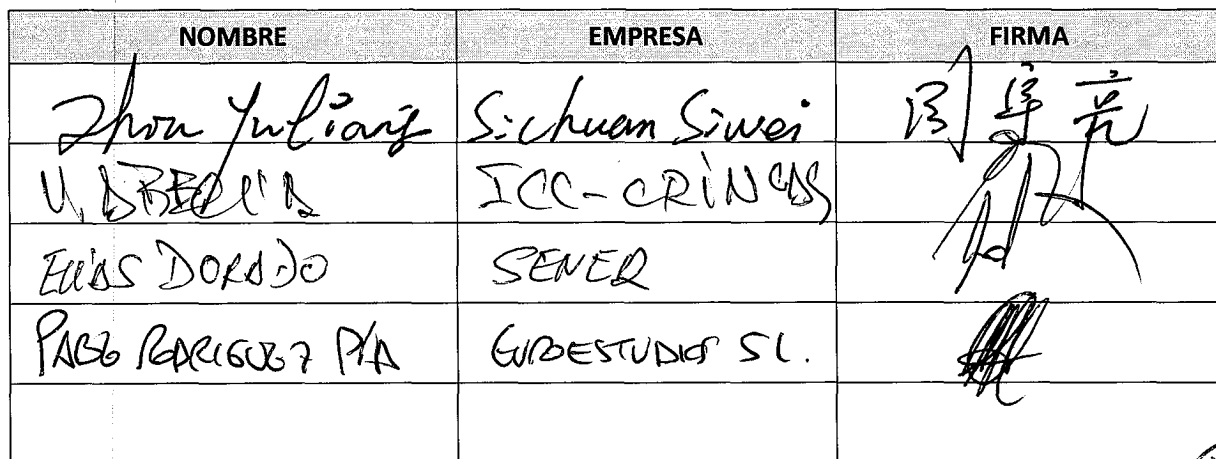 NOMBRE EMPRESA FIRMA
Zhou Yuliang Sichuan Siwei
ICC-CRINCAS
ELIAS DORADO SENER
PABLO RODRIGUEZ P/A EUROESTUDIOS SL.